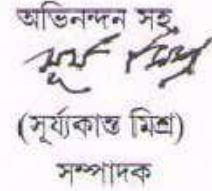 অভিনন্দন সহ
সূর্য মিশ্র
(সূর্য্যকান্ত মিশ্র)
সম্পাদক